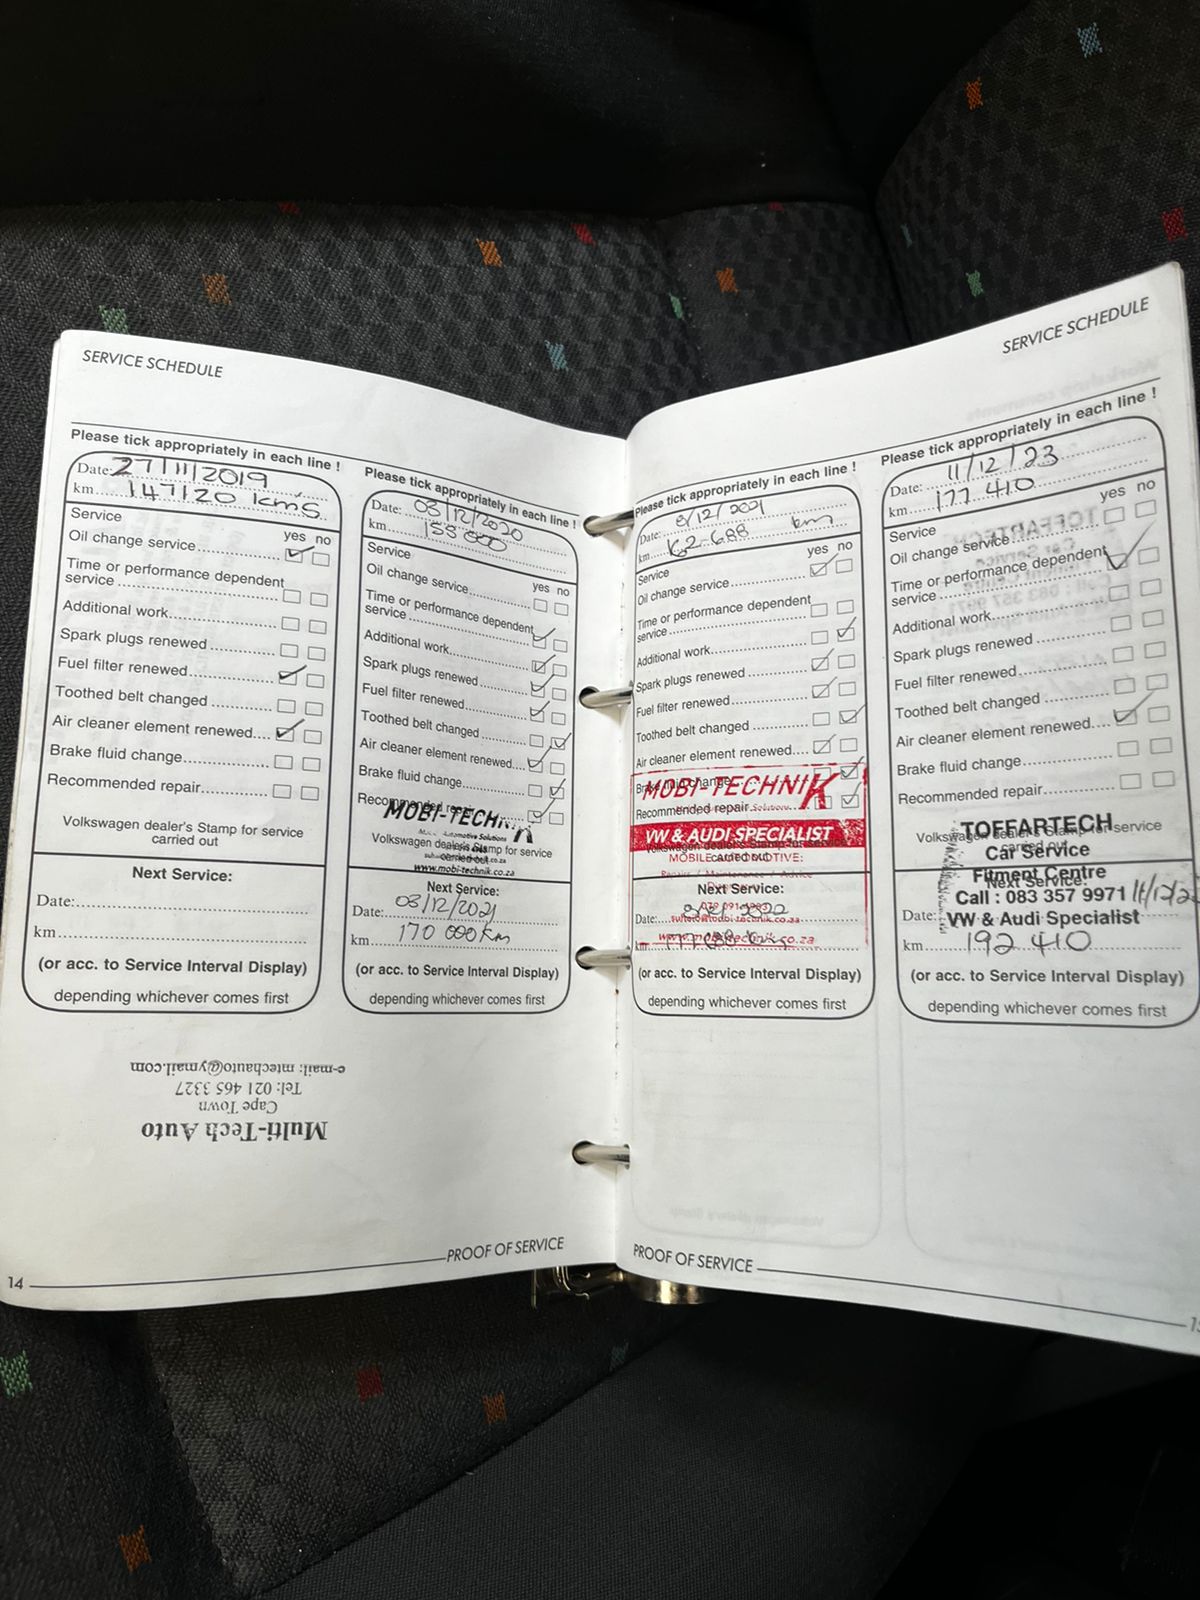 SERVICE SCHEDULE
Please tick appropriately in each line !
Date: 27/11/2019
km 147120 kms
Service
yes no
Oil change service
Time or performance dependent
service
Additional work
Spark plugs renewed
Fuel filter renewed
Toothed belt changed
Air cleaner element renewed....
Brake fluid change
Recommended repair
Volkswagen dealer's Stamp for service
carried out
Next Service:
Date:
km
(or acc. to Service Interval Display)
depending whichever comes first
Multi-Tech Auto
Cape Town
Tel: 021 465 3327
e-mail: mtechauto@ymail.com
14
PROOF OF SERVICE
Please tick appropriately in each line !
Date: 03/12/2020
km 155 000
Service
yes no
Oil change service
Time or performance dependent
service
Additional work
Spark plugs renewed
Fuel filter renewed
Toothed belt changed
Air cleaner element renewed....
Brake fluid change
Recommended repair
MOBI-TECHN
Automotive Solutions
Volkswagen dealer's Stamp for service
carried out
www.mobi-technik.co.za
Next Service:
Date: 03/12/2021
km 170 000km
(or acc. to Service Interval Display)
depending whichever comes first
SERVICE SCHEDULE
Please tick appropriately in each line !
Date: 8/12/2021
km 162-688 km
Service
yes no
Oil change service
Time or performance dependent
service
Additional work
Spark plugs renewed
Fuel filter renewed
Toothed belt changed
Air cleaner element renewed
Brake fluid change
MOBI-TECHNIK
Recommended repair
Solutions
VW & AUDI SPECIALIST
Volkswagen dealer's Stamp for service
carried out
MOBILE AUTOMOTIVE:
Repairs / Maintenance / Advice
Next Service:
Date:
km
www.mobi-technik.co.za
(or acc. to Service Interval Display)
depending whichever comes first
PROOF OF SERVICE
Please tick appropriately in each line !
Date: 11/12/23
km 177 410
Service
yes no
Oil change service
Time or performance dependent
service
Additional work
Spark plugs renewed
Fuel filter renewed
Toothed belt changed
Air cleaner element renewed
Brake fluid change
Recommended repair
TOFFARTECH
Volkswagen dealer's Stamp for service
carried out
Car Service
Fitment Centre
Next Service:
Call : 083 357 9971
Date:
VW & Audi Specialist
km 192 410
(or acc. to Service Interval Display)
depending whichever comes first